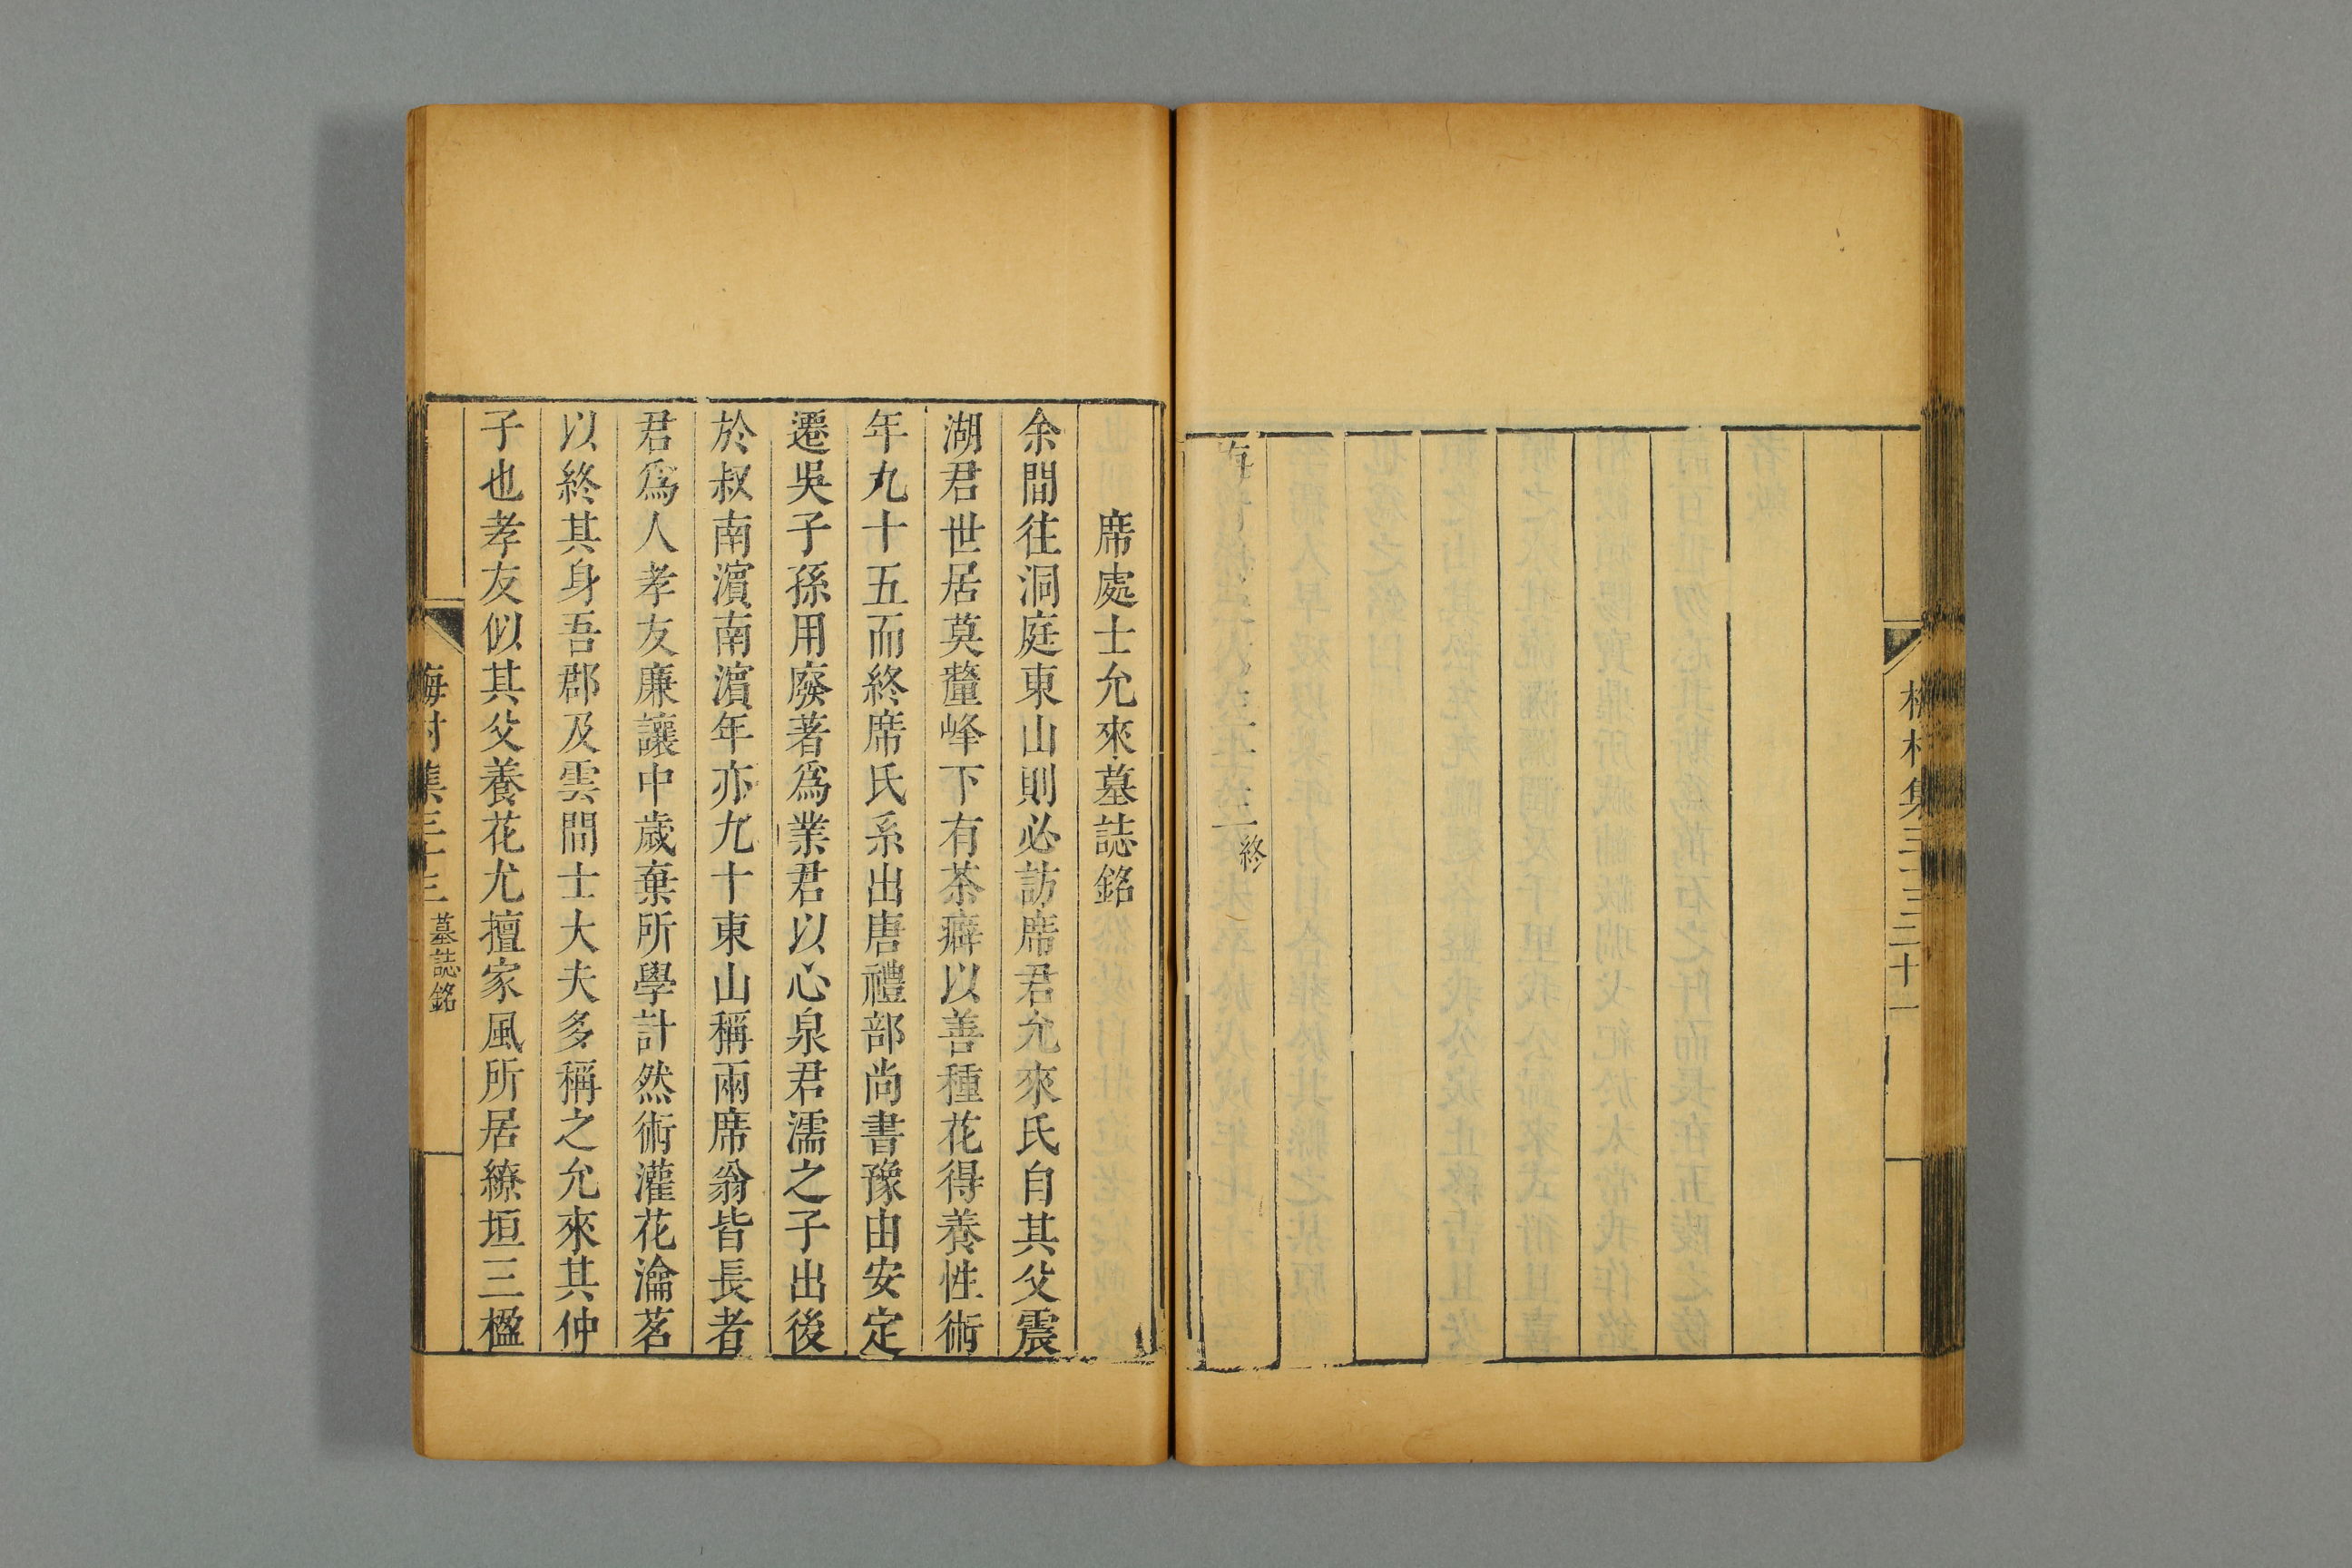 梅村集三十三
二十一
終
席處士允來墓誌銘
余間往洞庭東山則必訪席君允來氏自其父震
湖君世居莫釐峰下有茶癖以善種花得養性術
年九十五而終席氏系出唐禮部尚書豫由安定
遷吳子孫用廢著爲業君以心泉君濡之子出後
於叔南濵南濵年亦九十東山稱兩席翁皆長者
君爲人孝友廉讓中歲棄所學計然術灌花瀹茗
以終其身吾郡及雲間士大夫多稱之允來其仲
子也孝友似其父養花尤擅家風所居繚垣三楹
梅村集三十三
墓誌銘